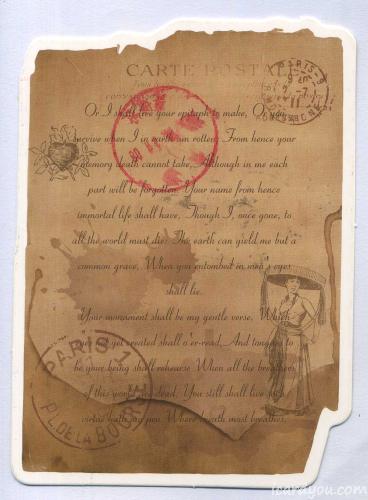 CARTE POSTALE
PARIS-
Or I shall live your epitaph to make, Or you
survive when I in earth am rotten. From hence your
memory death cannot take, Although in me each
part will be forgotten. Your name from hence
immortal life shall have, Though I, once gone, to
all the world must die: The earth can yield me but a
common grave, When you entombed in men's eyes
shall lie.
Your monument shall be my gentle verse. Which
eyes not yet created shall o'er-read, And tongues to
be your being shall rehearse When all the breathers
of this world are dead. You still shall live such
virtue hath my pen Where breath most breathes,
PARIS-1
PL.DE LA BOURSE
icarayou.com